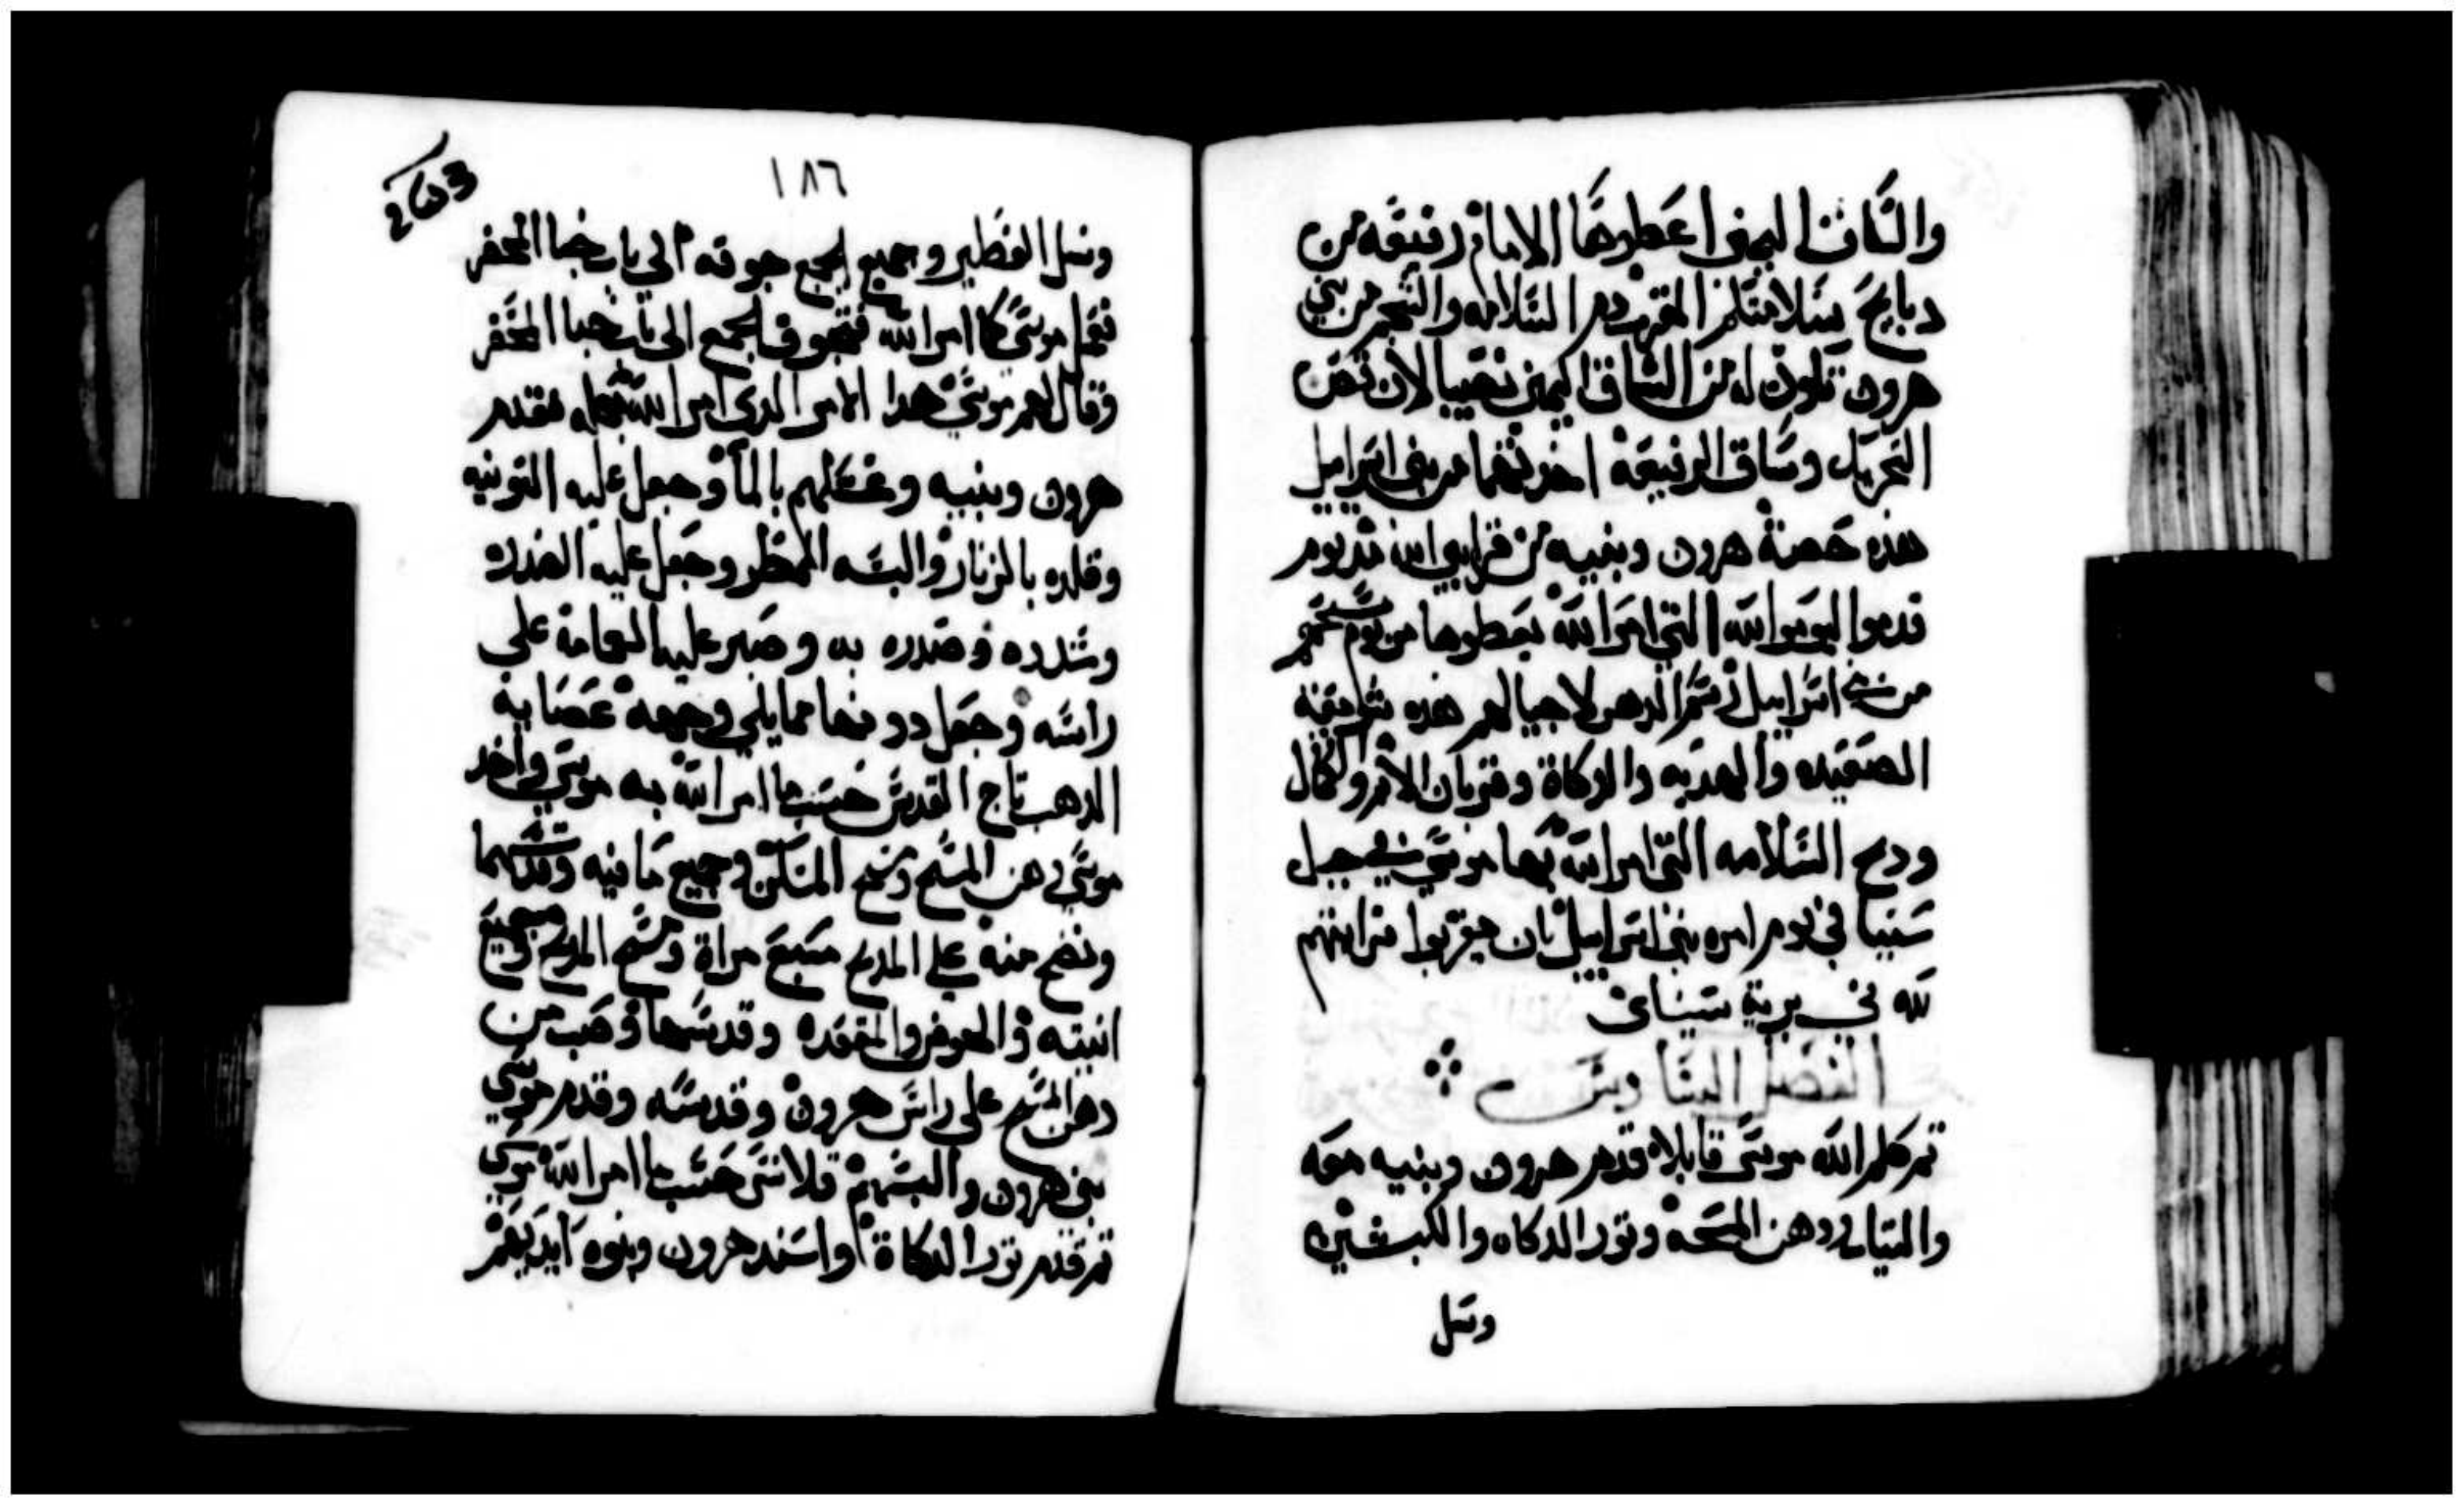 والساق اليمنى اعطوها الامام رفيعه من
دبايح سلامتكم المقرب دم السلامه والشحم من بني
هرون تكون له من الساق اليمنى نصيبا لان قص
التحريك وساق الرفيعة اخدتهما من بني اسراييل
هذه حصة هرون وبنيه من قرابين الله مند يوم
قدموا ليوموا لله التي امر الله يعطوها من يوم مسحهم
من بني اسراييل رسم الدهر لاجيالهم هذه شريعة
الصعيده والهديه والدكاة وقربان الاثم والكمال
ودبح السلامه التي امر الله بها موسى في جبل
سينا في يوم امره بني اسراييل بان يقربوا قرابينهم
لله في برية سيناى
الفصل السادس
تم كلم الله موسى قايلا قدم هرون وبنيه معه
والتياب ودهن المسحه وتور الدكاه والكبشين
وسل
١٨٦
وسل الفطير وجميع الجمع جوقه الي باب خبا المحضر
فعمل موسى كما امر الله فتجوق الجمع الى باب خبا المحضر
وقال لهم موسى هدا الامر الدي امر الله بعمله فقدم
هرون وبنيه وغسلهم بالماء وجعل عليه التونيه
وقلده بالزنار والبسه الممطر وجعل عليه الصدره
وشدده وصدره به وصير عليه العمامة على
راسه وجعل دونها مما يلي وجهه عصابة
الدهب تاج القدس حسب ما امر الله به موسى واخد
موسى دهن المسح ومسح المسكن وجميع ما فيه وقدسهما
ونضح منه على المدبح سبع مراة ومسح المدبح وجميع
انيته والحوض والمقعده وقدسها وصب من
دهن المسح على راس هرون وقدسه وقدم موسى
بني هرون والبسهم قلانس حسب ما امر الله موسى
تم قدم تور الدكاة واسند هرون وبنوه ايديهم